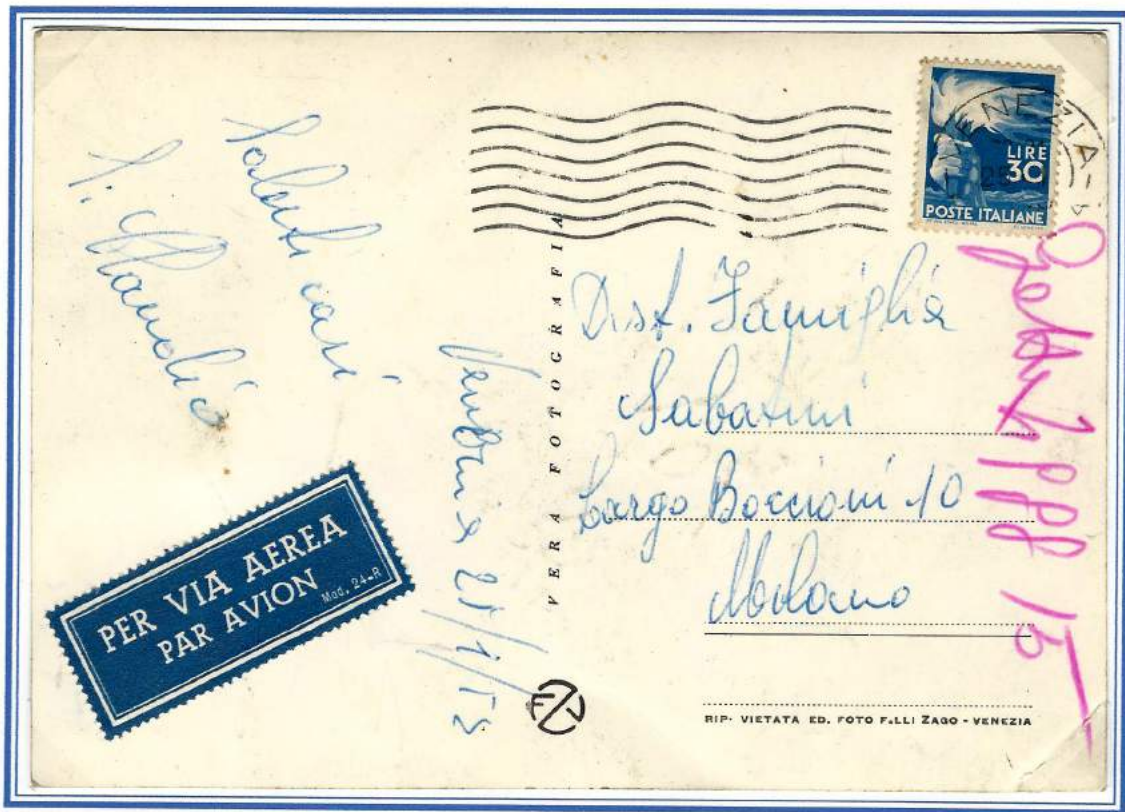 Saluti cari
Venezia 25/1/53
PER VIA AEREA
PAR AVION
Mod. 24-R
VERA FOTOGRAFIA
VENEZIA
LIRE
30
POSTE ITALIANE
Dist. Famiglia
Sabatini
Largo Boccioni 10
Milano
RIP. VIETATA ED. FOTO F.LLI ZAGO - VENEZIA